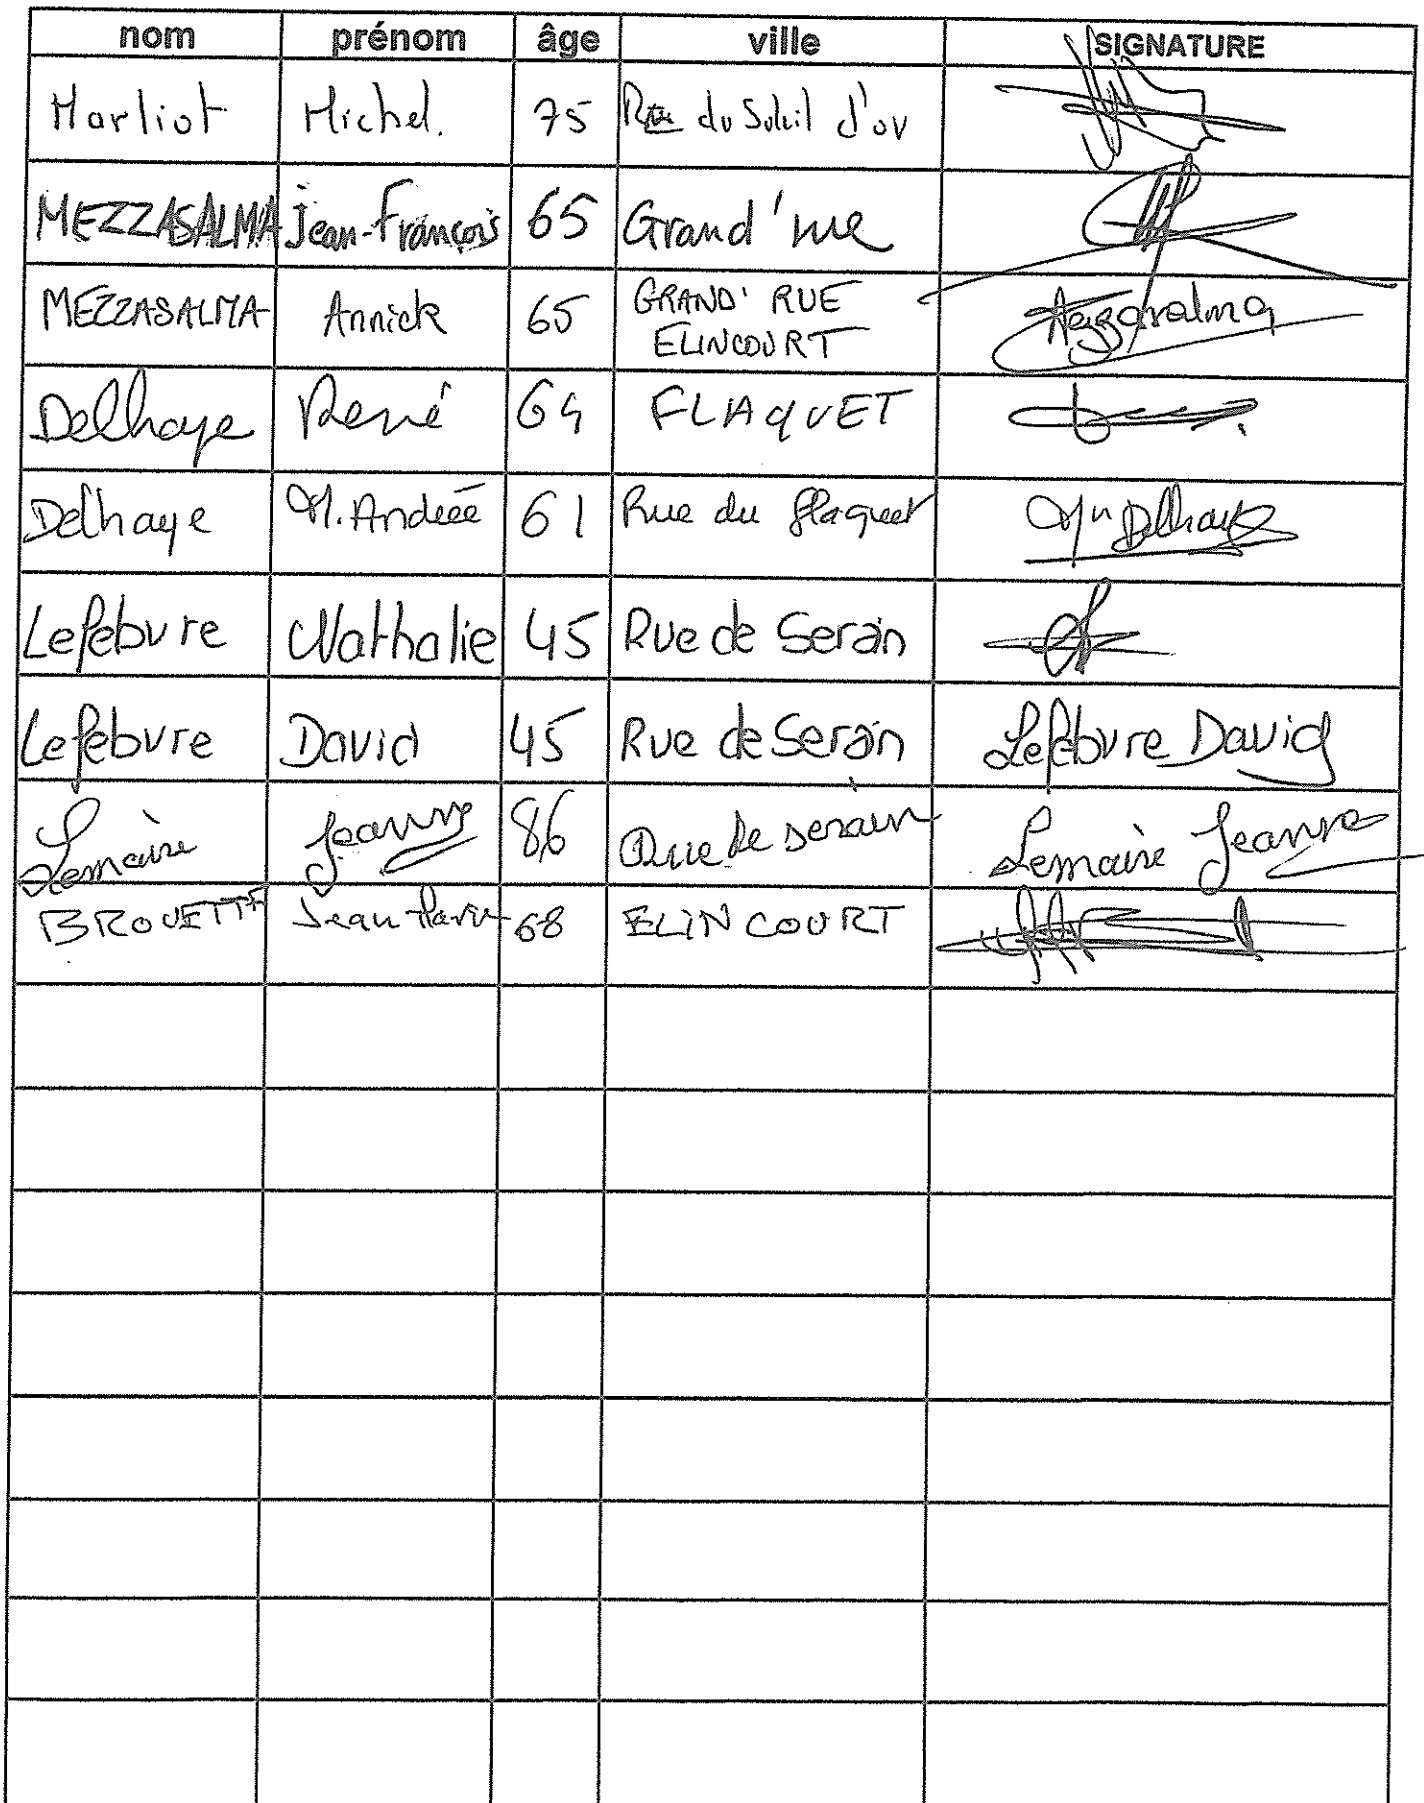 nom prénom âge ville SIGNATURE
Marliot Michel. 75 Rue du Soleil d'or
MEZZASALMA Jean-François 65 Grand'rue
MEZZASALMA Annick 65 GRAND' RUE
ELINCOURT
Delhaye René 64 FLAQUET
Delhaye M. Andrée 61 Rue du flaquet Delhaye
Lefebvre Nathalie 45 Rue de Serain
Lefebvre David 45 Rue de Serain Lefebvre David
Lemaire Jeanne 86 Rue de serain Lemaire Jeanne
BROUETTE Jean Marie 68 ELINCOURT